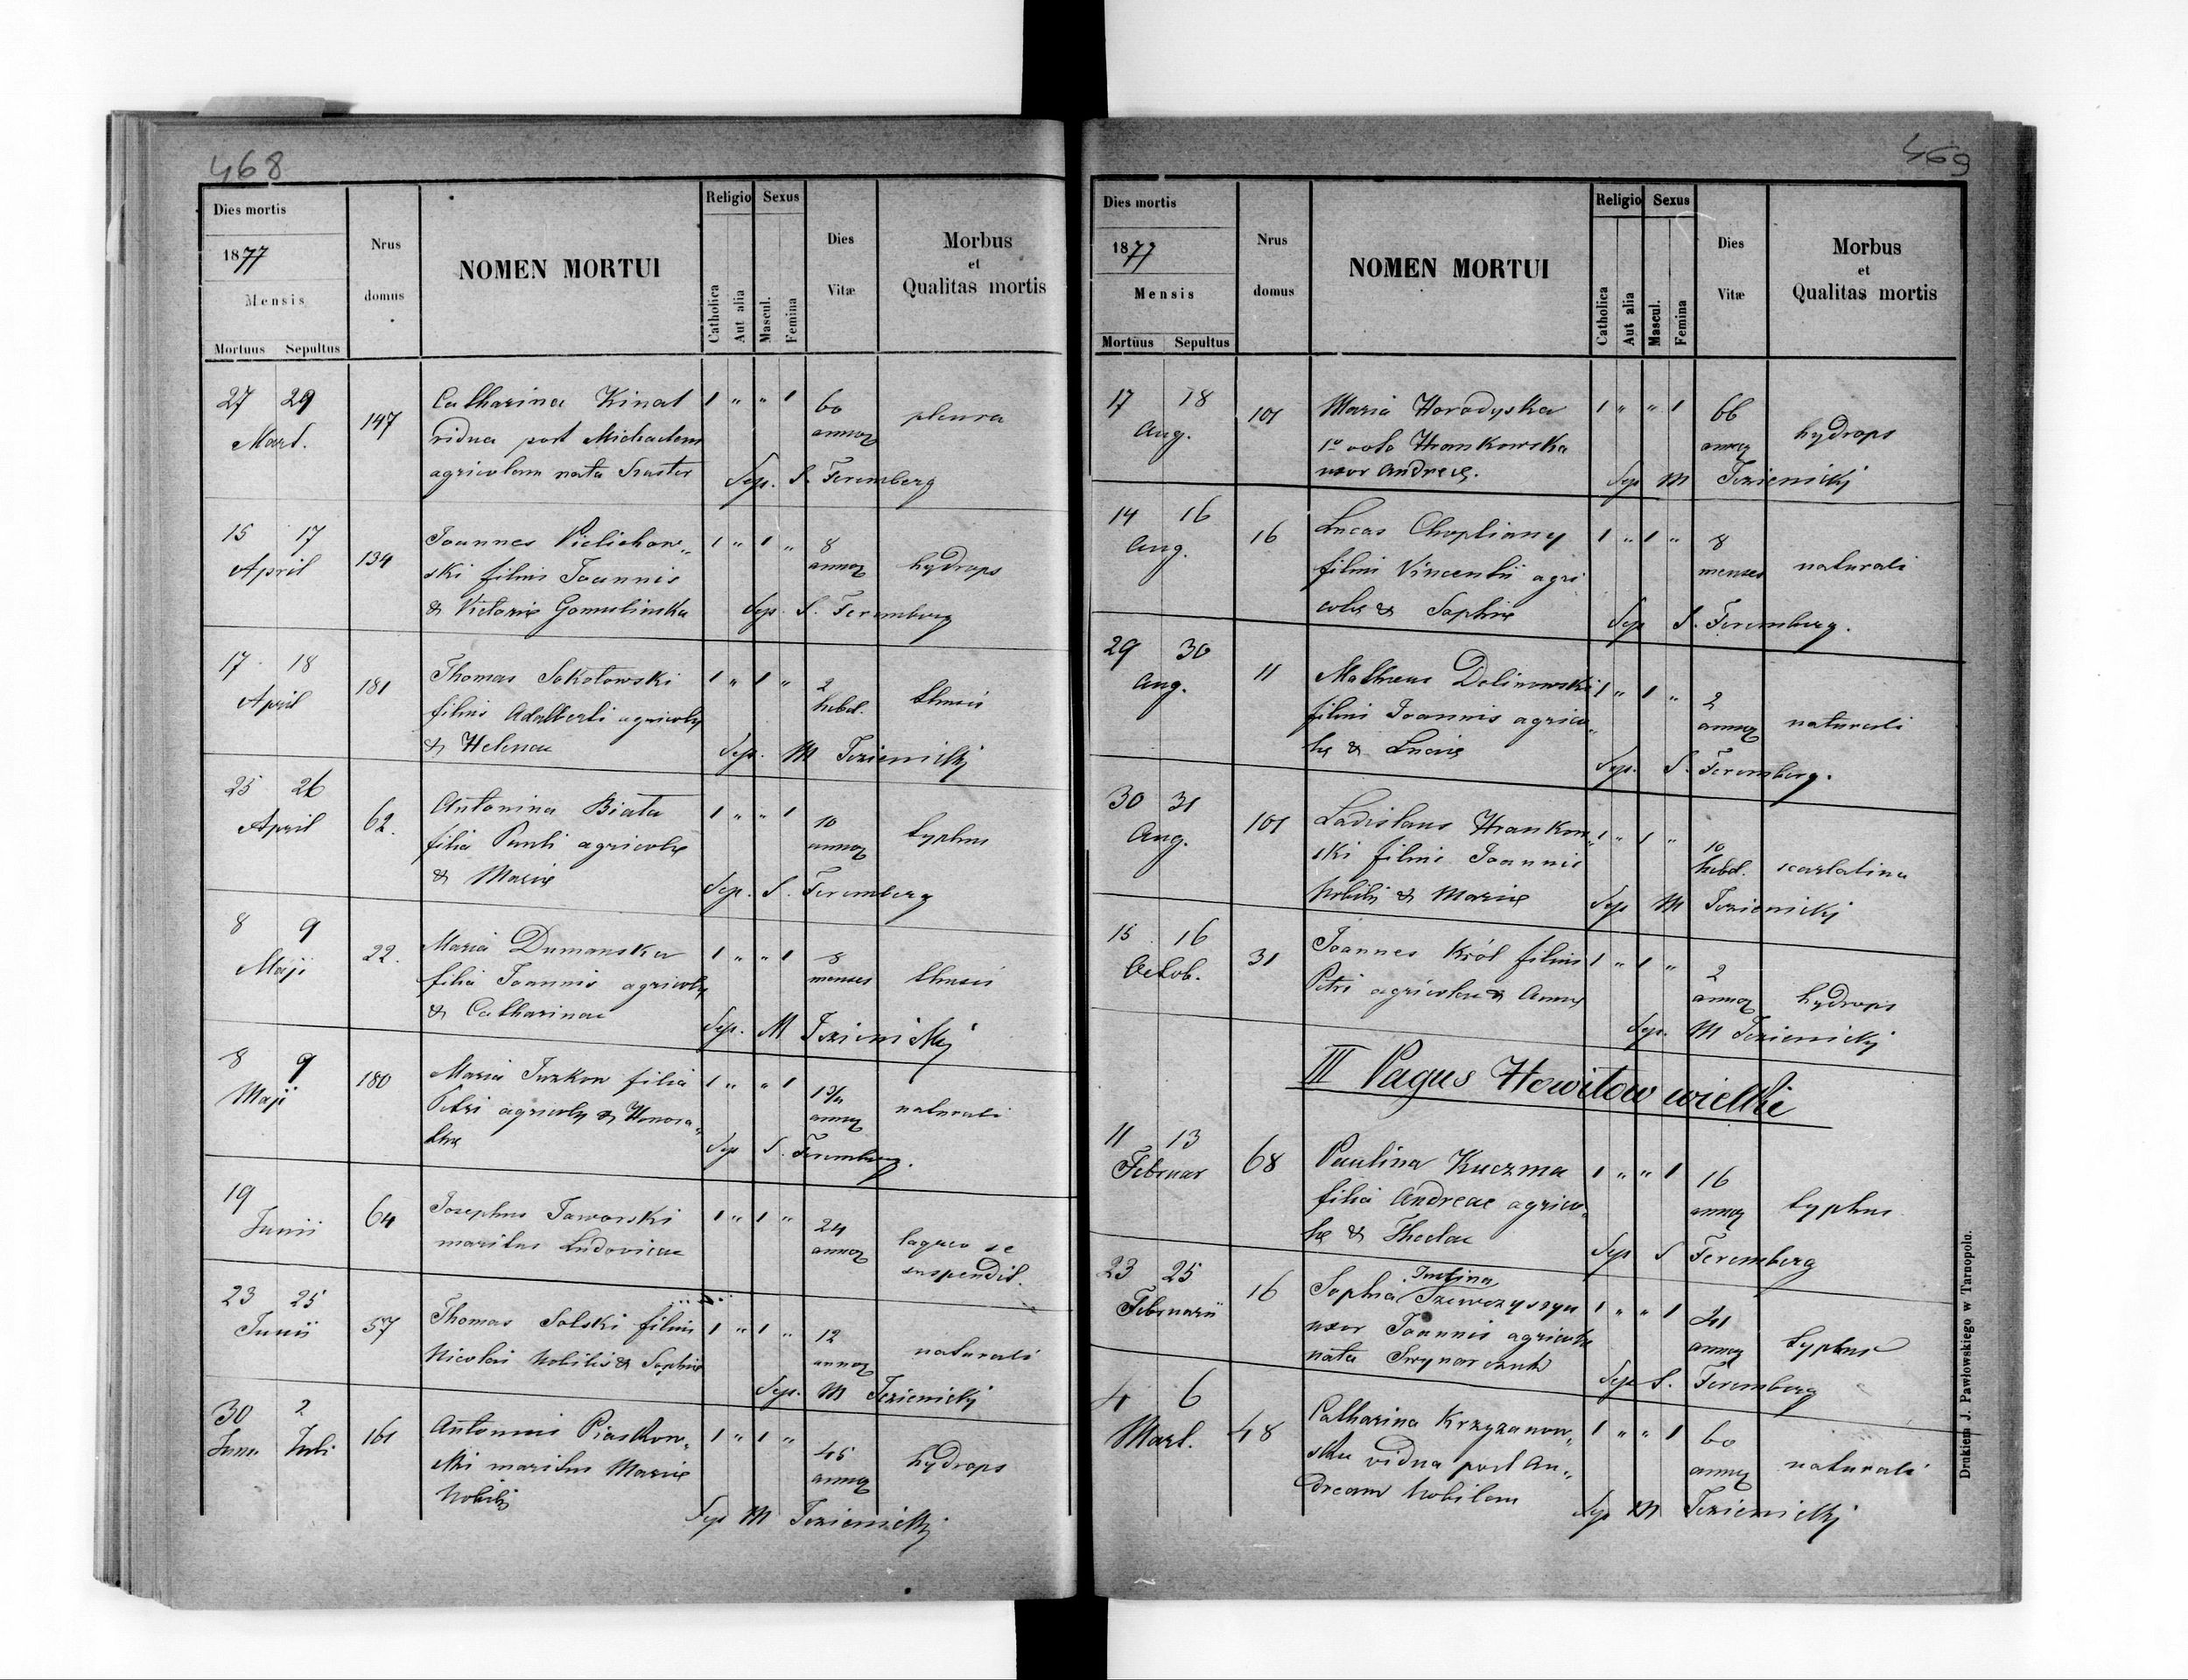 468
Dies mortis
1877
Mensis
Mortuus Sepultus
Nrus domus
NOMEN MORTUI
Religio
Catholica
Aut alia
Sexus
Mascul.
Femina
Dies Vitæ
Morbus
et
Qualitas mortis
27 29 Mart. 147 Catharina Kinal 1 " " 1 60 annor pleura
vidua post Michaelem
agricolam nata Szuster Sep. S. Feremberg
15 17 April 134 Joannes Wielichow„ 1 " 1 " 8 annor hydrops
ski filius Joannis
& Victoriæ Gomulinska Sep. S. Feremberg
17 18 April 181 Thomas Sokołowski 1 " 1 " 2 hebd. thusis
filius Adalberti agricolæ
& Helenae Sep. M Jezienickj
25 26 April 62. Antonina Biała 1 " " 1 10 annor typhus
filia Pauli agricolæ
& Mariæ Sep. S. Feremberg
8 9 Maji 22. Maria Dumanska 1 " " 1 8 menses thusis
filia Joannis agricolæ
& Catharinae Sep. M Jezienickj
8 9 Maji 180 Maria Juzkow filia 1 " " 1 annor naturali
Petri agricolæ & Honora„
thæ Sep S. Feremberg.
19 Junii 64 Josephus Jaworski 1 " 1 " 24 annor laqueo se
maritus Ludovicae suspendit.
23 25 Junii 57 Thomas Solski filius 1 " 1 " 12 annor naturali
Nicolai Nobilis & Sophiæ
Sep. M Jezienickj
30 2 Juni Juli 161 Antonius Piaskow„ 1 " 1 " 45 annor hydrops
ski maritus Mariæ
Nobilis
Sep M Jezienickj
469
Dies mortis
1877
Mensis
Mortuus Sepultus
Nrus domus
NOMEN MORTUI
Religio
Catholica
Aut alia
Sexus
Mascul.
Femina
Dies Vitæ
Morbus
et
Qualitas mortis
17 18 Aug. 101 Maria Horodyska 1 " " 1 66 annor hydrops
1º voto Hrankowska
uxor Andreæ. Sep M Jezienickj
14 16 Aug. 16 Lucas Chopliany 1 " 1 " 8 menses naturali
filius Vincentii agri
colæ & Sophiæ Sep S. Feremberg.
29 30 Aug. 11 Matheus Dolinowski 1 " 1 " 2 annor naturali
filius Joannis agrico„
læ & Luciæ Sep. S. Feremberg.
30 31 Aug. 101 Ladislaus Hrankow„ 1 " 1 " 10 hebd. scarlatina
ski filius Joannis
Nobilis & Mariæ Sep M Jezienickj
15 16 Octob. 31 Joannes Król filius 1 " 1 " 2 annor hydrops
Petri agricolae & Annæ
Sep. M Jezienickj
III Pagus Howiłow wielki
11 13 Februar 68 Paulina Kuczma 1 " " 1 16 annor typhus
filia Andreae agrico„
læ & Theclae Sep S Feremberg
23 25 Februarii 16 Sophia Justina Szewczyszyn 1 " " 1 41 annor typhus
uxor Joannis agricolæ
nata Swynarczuk Sep S. Feremberg
4 6 Mart. 48 Catharina Krzyzanow„ 1 " " 1 60 annor naturali
ska vidua post An„
dream Nobilem
Sep M Jezienickj
Drukiem J. Pawłowskiego w Tarnopolu.